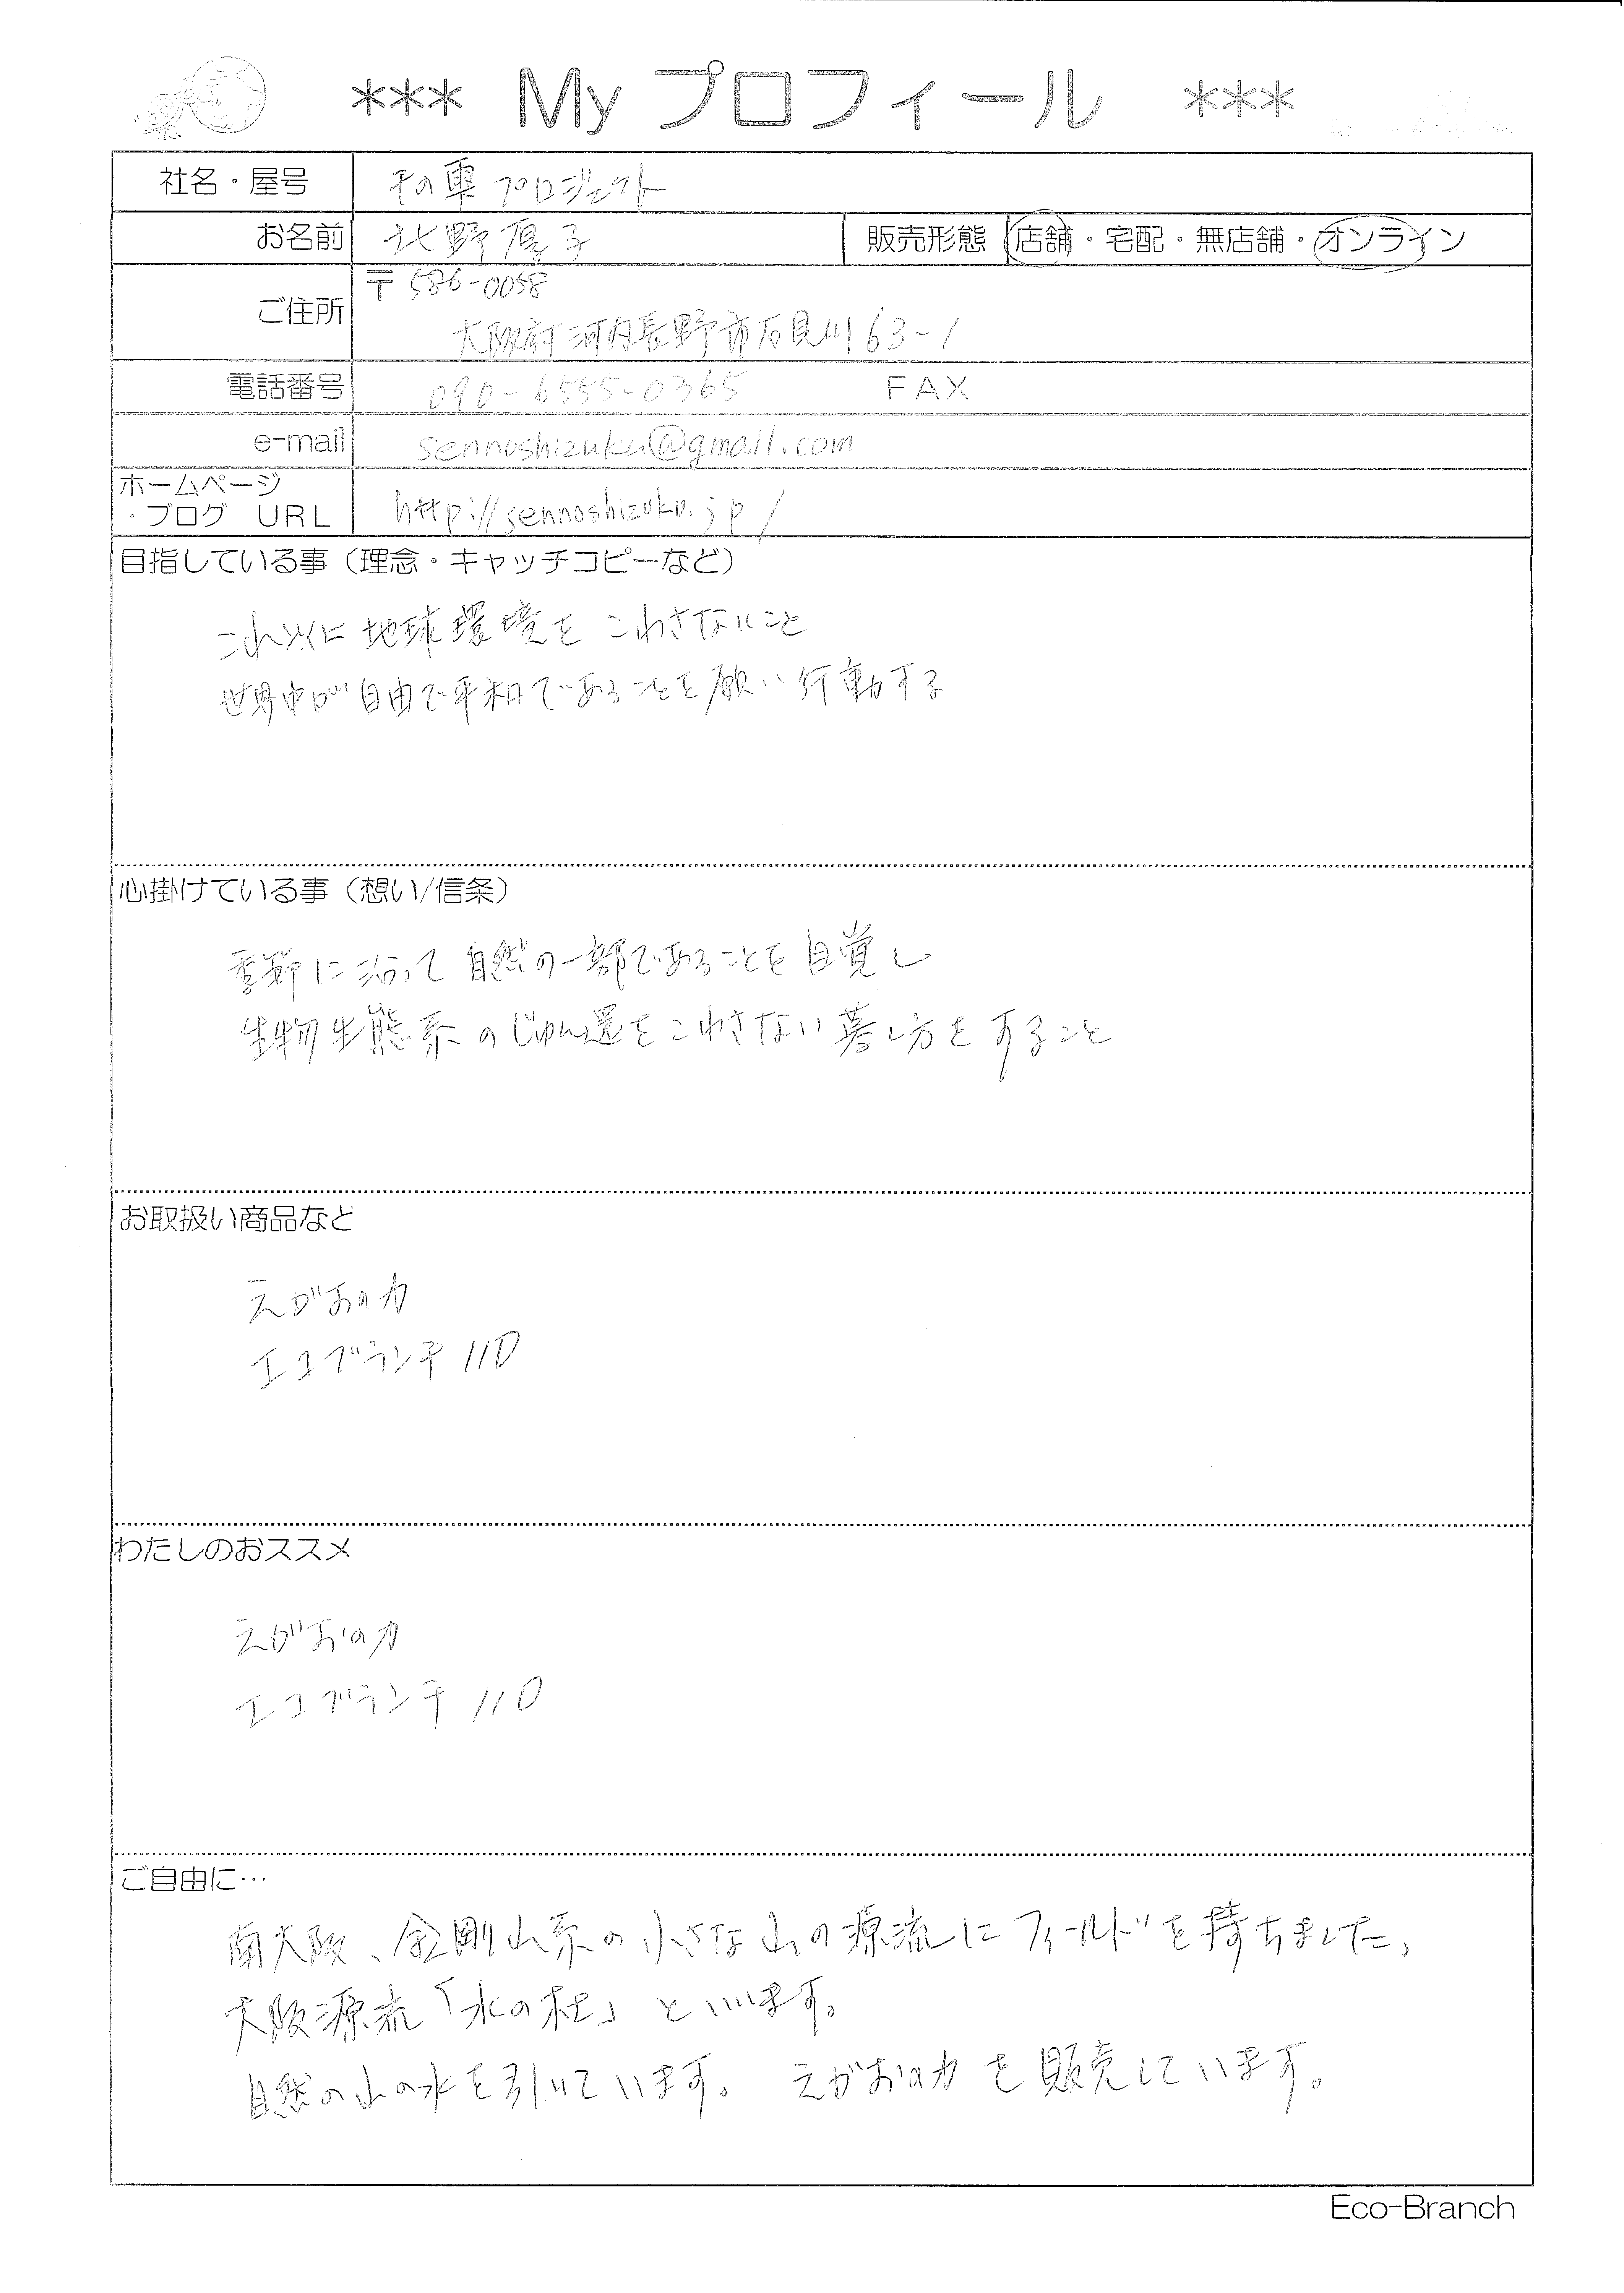 *** My プロフィール ***
社名・屋号 千の雫プロジェクト
お名前 北野優子 販売形態 店舗・宅配・無店舗・オンライン
ご住所 〒586-0058
大阪府河内長野市石見川63-1
電話番号 090-6555-0365 FAX
e-mail sennoshizuku@gmail.com
ホームページ
・ブログ URL http://sennoshizuku.jp/
目指している事（理念・キャッチコピーなど）
これ以上に地球環境をこわさないこと
世界中が自由で平和であることを願い行動する
心掛けている事（想い/信条）
季節に沿って自然の一部であることを自覚し
生物生態系のじゅん還をこわさない暮し方をすること
お取扱い商品など
えがおの力
エコブランチ110
わたしのおススメ
えがおの力
エコブランチ110
ご自由に…
南大阪、金剛山系の小さな山の源流にフィールドを持ちました、
大阪源流「水の杜」といいます。
自然の山の水を引いています。 えがおの力を販売しています。
Eco-Branch